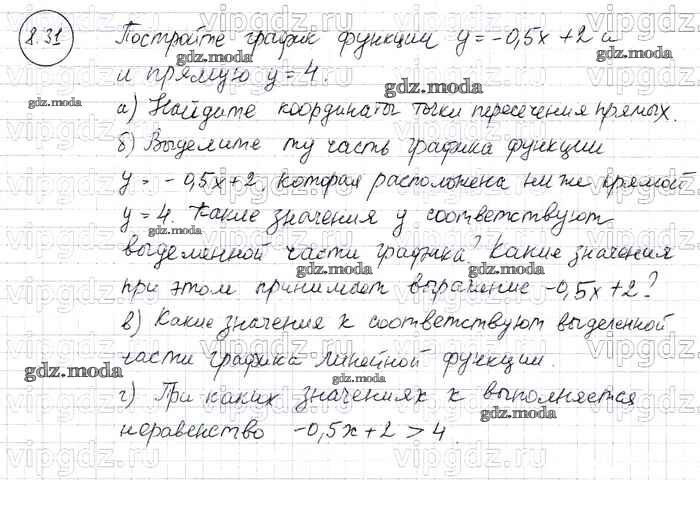 8.31 Постройте график функции y = -0,5x + 2 и
и прямую y = 4.
а) Найдите координаты точки пересечения прямых.
б) Выделите ту часть графика функции
y = -0,5x+2, которая расположена ниже прямой
y = 4. Какие значения y соответствуют
выделенной части графика? Какие значения
при этом принимает выражение -0,5x+2?
в) Какие значения x соответствуют выделенной
части графика линейной функции.
г) При каких значениях x выполняется
неравенство -0,5x+2 > 4.